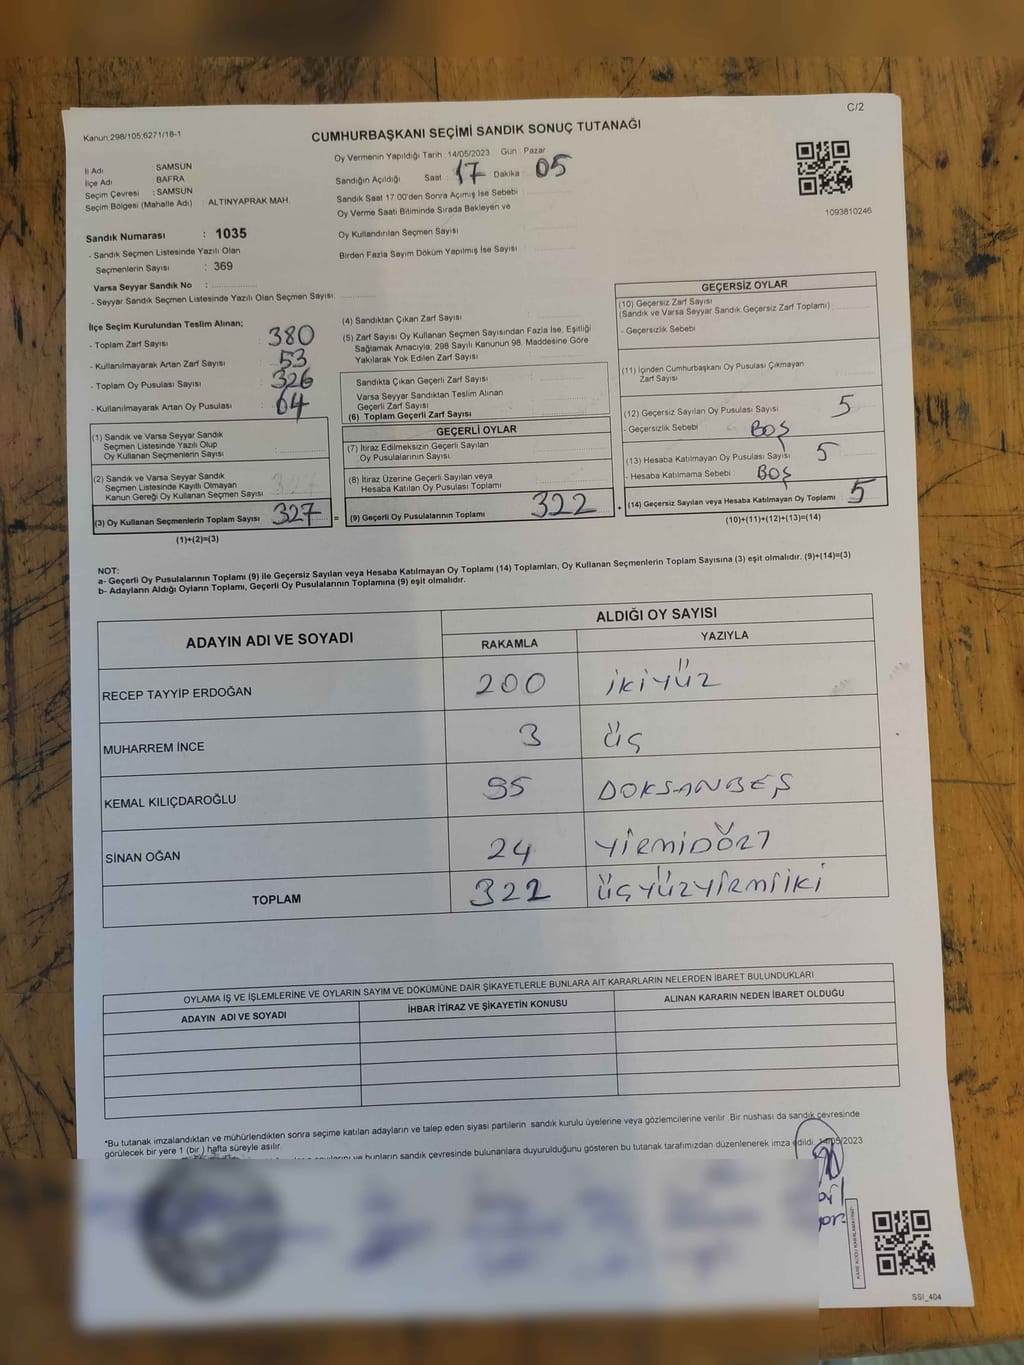 C/2
Kanun:298/105;6271/18-1
CUMHURBAŞKANI SEÇİMİ SANDIK SONUÇ TUTANAĞI
İl Adı : SAMSUN
İlçe Adı : BAFRA
Seçim Çevresi : SAMSUN
Seçim Bölgesi (Mahalle Adı) : ALTINYAPRAK MAH.
Oy Vermenin Yapıldığı Tarih : 14/05/2023 Gün : Pazar
Sandığın Açıldığı Saat : 17 Dakika : 05
Sandık Saat 17:00'den Sonra Açılmış İse Sebebi
Oy Verme Saati Bitiminde Sırada Bekleyen ve
Oy Kullandırılan Seçmen Sayısı
Birden Fazla Sayım Döküm Yapılmış İse Sayısı
1093810246
Sandık Numarası : 1035
- Sandık Seçmen Listesinde Yazılı Olan
Seçmenlerin Sayısı : 369
Varsa Seyyar Sandık No :
- Seyyar Sandık Seçmen Listesinde Yazılı Olan Seçmen Sayısı
İlçe Seçim Kurulundan Teslim Alınan;
- Toplam Zarf Sayısı : 380
- Kullanılmayarak Artan Zarf Sayısı : 53
- Toplam Oy Pusulası Sayısı : 326
- Kullanılmayarak Artan Oy Pusulası : 64
(1) Sandık ve Varsa Seyyar Sandık
Seçmen Listesinde Yazılı Olup
Oy Kullanan Seçmenlerin Sayısı
(2) Sandık ve Varsa Seyyar Sandık
Seçmen Listesinde Kayıtlı Olmayan
Kanun Gereği Oy Kullanan Seçmen Sayısı
(3) Oy Kullanan Seçmenlerin Toplam Sayısı 327 =
(1)+(2)=(3)
(4) Sandıktan Çıkan Zarf Sayısı
(5) Zarf Sayısı Oy Kullanan Seçmen Sayısından Fazla İse, Eşitliği
Sağlamak Amacıyla; 298 Sayılı Kanunun 98. Maddesine Göre
Yakılarak Yok Edilen Zarf Sayısı
Sandıkta Çıkan Geçerli Zarf Sayısı
Varsa Seyyar Sandıktan Teslim Alınan
Geçerli Zarf Sayısı
(6) Toplam Geçerli Zarf Sayısı
GEÇERLİ OYLAR
(7) İtiraz Edilmeksizin Geçerli Sayılan
Oy Pusulalarının Sayısı
(8) İtiraz Üzerine Geçerli Sayılan veya
Hesaba Katılan Oy Pusulası Toplamı
(9) Geçerli Oy Pusulalarının Toplamı 322 +
GEÇERSİZ OYLAR
(10) Geçersiz Zarf Sayısı
(Sandık ve Varsa Seyyar Sandık Geçersiz Zarf Toplamı)
- Geçersizlik Sebebi
(11) İçinden Cumhurbaşkanı Oy Pusulası Çıkmayan
Zarf Sayısı
(12) Geçersiz Sayılan Oy Pusulası Sayısı 5
- Geçersizlik Sebebi : BOŞ
(13) Hesaba Katılmayan Oy Pusulası Sayısı 5
- Hesaba Katılmama Sebebi : BOŞ
(14) Geçersiz Sayılan veya Hesaba Katılmayan Oy Toplamı 5
(10)+(11)+(12)+(13)=(14)
NOT:
a- Geçerli Oy Pusulalarının Toplamı (9) ile Geçersiz Sayılan veya Hesaba Katılmayan Oy Toplamı (14) Toplamları, Oy Kullanan Seçmenlerin Toplam Sayısına (3) eşit olmalıdır. (9)+(14)=(3)
b- Adayların Aldığı Oyların Toplamı, Geçerli Oy Pusulalarının Toplamına (9) eşit olmalıdır.
ADAYIN ADI VE SOYADI
ALDIĞI OY SAYISI
RAKAMLA YAZIYLA
RECEP TAYYİP ERDOĞAN 200 İKİYÜZ
MUHARREM İNCE 3 ÜÇ
KEMAL KILIÇDAROĞLU 95 DOKSANBEŞ
SİNAN OĞAN 24 YİRMİDÖRT
TOPLAM 322 ÜÇYÜZYİRMİİKİ
OYLAMA İŞ VE İŞLEMLERİNE VE OYLARIN SAYIM VE DÖKÜMÜNE DAİR ŞİKAYETLERLE BUNLARA AİT KARARLARIN NELERDEN İBARET BULUNDUKLARI
ADAYIN ADI VE SOYADI
İHBAR İTİRAZ VE ŞİKAYETİN KONUSU
ALINAN KARARIN NEDEN İBARET OLDUĞU
*Bu tutanak imzalandıktan ve mühürlendikten sonra seçime katılan adayların ve talep eden siyasi partilerin sandık kurulu üyelerine veya gözlemcilerine verilir. Bir nüshası da sandık çevresinde
görülecek bir yere 1 (bir ) hafta süreyle asılır.
ve bunların sandık çevresinde bulunanlara duyurulduğunu gösteren bu tutanak tarafımızdan düzenlenerek imza edildi. 14/05/2023
SSI_404